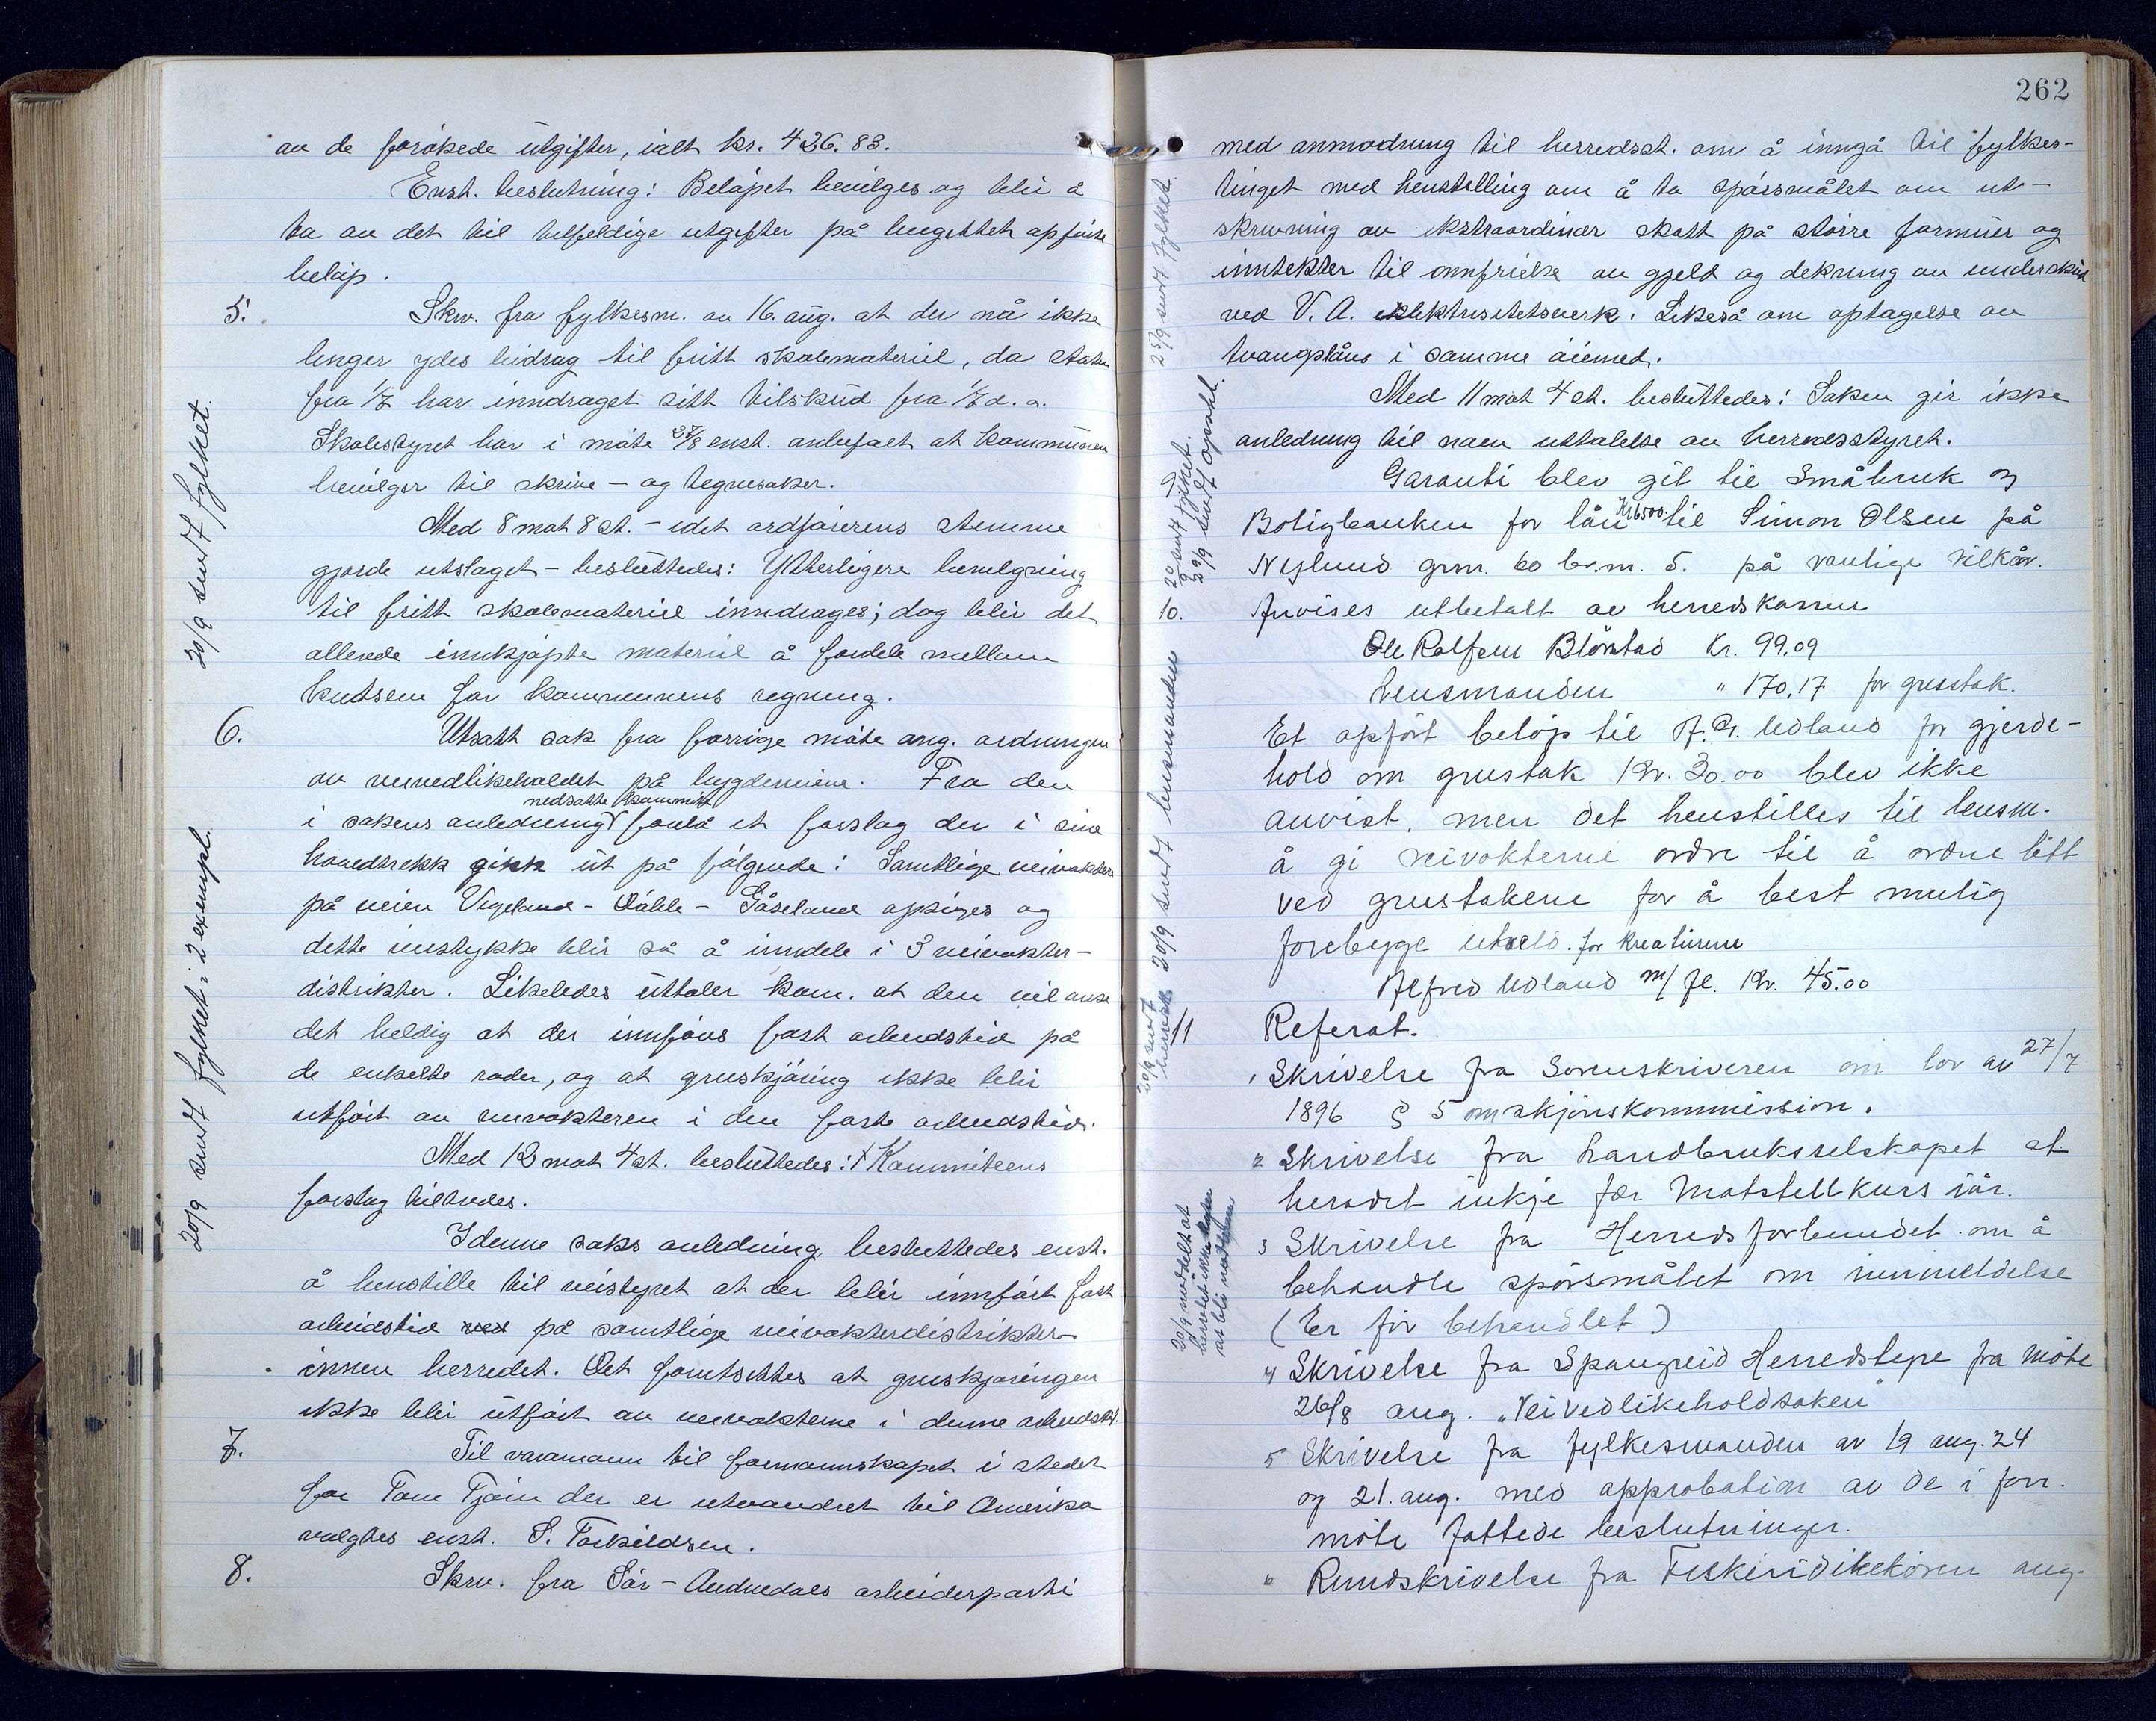 av de forøkede utgifter, ialt kr. 426.83.
Enst. beslutning: Beløpet bevilges og blir å
ta av det til tilfeldige utgifter på bugettet opførte
beløp.
5. Skriv. fra fylkesm. av 16. aug. at der nå ikke
lenger ydes bidrag til fritt skolemateriel, da staten
fra 1/7 har inndraget sitt tilskud fra 1/7 d. a.
Skolestyret har i møte 27/8 enst. anbefalt at kommunen
bevilger til skrive- og tegnesaker.
Med 8 mot 8 st. - idet ordførerens stemme
gjorde utslaget - besluttedes: Ytterligere bevilgning
til fritt skolemateriel inndrages; dog blir det
allerede innkjøpte materiel å fordele mellem
kretsene for kommunens regning.
20/9 sendt fylket.
6. Utsatt sak fra forrige møte ang. ordningen
av veivedlikeholdet på bygdeveiene. Fra den
i sakens anledning nedsatte kommite forelå et forslag der i sine
hovedtrekk gikk ut på følgende: Samtlige veivoktere
på veien Vigeland - Dåhle - Gåseland opsiges og
dette veistykke blir så å inndele i 3 veivokter-
distrikter. Likeledes uttaler kom. at den vil anse
det heldig at der innføres fast arbeidstid på
de enkelte roder, og at gruskjøring ikke blir
utført av veivokteren i den faste arbeidstid.
Med 12 mot 4 st. besluttedes: Kommiteens
forslag tiltredes.
I denne saks anledning besluttedes enst.
å henstille til veistyret at der blir innført fast
arbeidstid ved på samtlige veivokterdistrikter
innen herredet. Det forutsettes at gruskjøringen
ikke blir utført av veivokterne i denne arbeidstid.
20/9 sendt fylket i 2 exempl.
7. Til varamann til formannskapet i stedet
for Tom Tjøm der er utvandret til Amerika
valgtes enst. S. Torkildsen.
8. Skriv. fra Sør-Audnedals arbeiderparti
262
med anmodning til herredsst. om å inngå til fylkes-
tinget med henstilling om å ta spørsmålet om ut-
skrivning av ekstraordinær skatt på større formuer og
inntekter til innfrielse av gjeld og dekning av underskud
ved V. A. elektrisitetsverk. Likeså om optagelse av
tvangslåns i samme øiemed.
25/9 sendt fylket.
Med 11 mot 4 st. besluttedes: Saken gir ikke
anledning til noen uttalelse av herredsstyret.
Garanti blev git til Småbruk og
Boligbanken for lån Kr 6500. til Simon Olsen på
Nylund grnr. 60 br.nr. 5. på vanlige vilkår.
20/9 sendt fylket.
29/9 sendt Opsahl.
10. Anvises utbetalt av herredskassen
Ole Rolfsen Blørstad Kr. 99.09
Lensmanden " 170,17 for grustak.
Et opført beløp til A. G. Udland for gjerde-
hold om grustak Kr. 30.00 blev ikke
anvist, men det henstilles til lensm.
å gi veivokterne ordre til å ordne litt
ved grustakene for å best mulig
forebygge uheld. for kreaturene
Alfred Udland m/ fl. Kr. 45.00
20/9 sendt lensmanden
20/9 sendt
11 Referat.
1 Skrivelse fra Sorenskriveren om lov av 27/7
1896 § 5 om skjønskommission.
2 Skrivelse fra Landbruksselskapet at
heradet inkje fær Matstellkurs iår.
3 Skrivelse fra Herredsforbundet om å
behandle spørsmålet om innmeldelse
(Er før behandlet)
20/9 meddelt at
herredet ikke
at bli medlem
4 Skrivelse fra Spangreid Herredstyre fra møte
26/8 ang. "Veivedlikeholdsaken"
5 Skrivelse fra fylkesmanden av 19 aug. 24
og 21. aug. med approbation av de i forr.
møte fattede beslutninger.
6 Rundskrivelse fra Fiskeridirektøren ang.